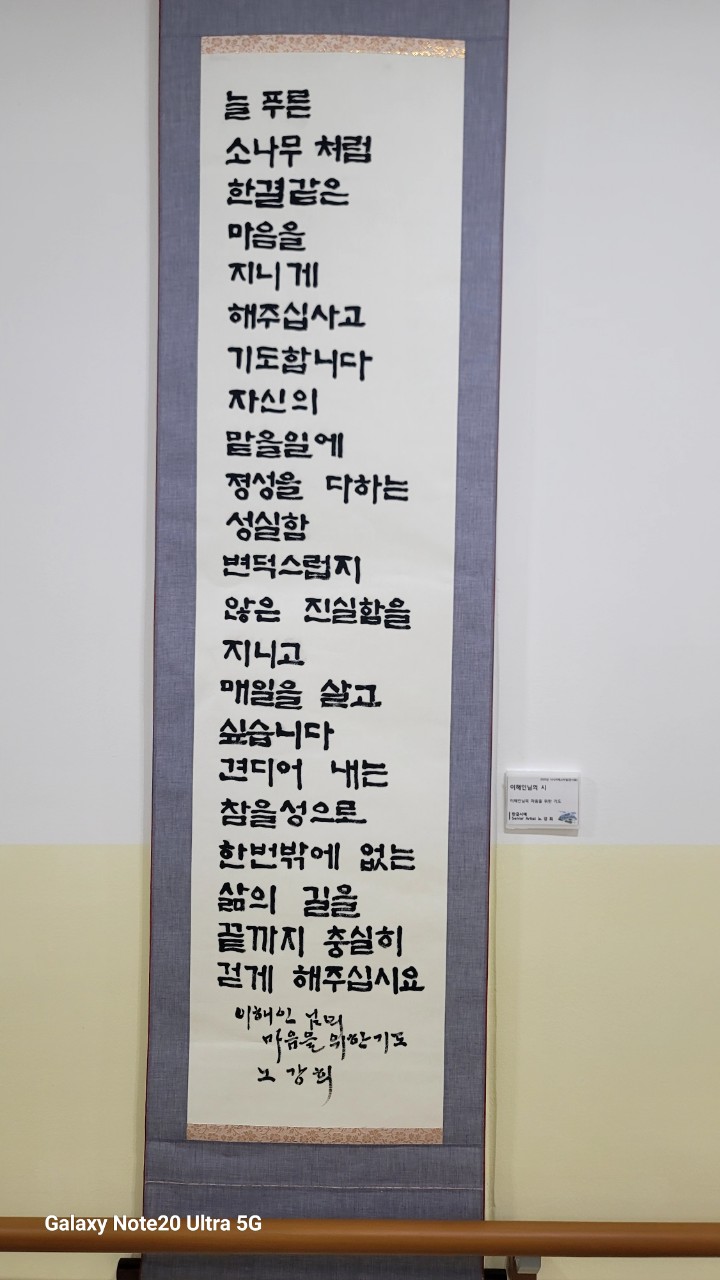 늘 푸른
소나무 처럼
한결같은
마음을
지니게
해주십사고
기도합니다
자신의
맡을일에
정성을 다하는
성실함
변덕스럽지
않은 진실함을
지니고
매일을 살고
싶습니다
견디어 내는
참을성으로
한번밖에 없는
삶의 길을
끝까지 충실히
걷게 해주십시요
이해인 님의
마음을 위한기도
노 강 희
이해인님의 시
이해인님의 마음을 위한 기도
노 강 희
Galaxy Note20 Ultra 5G